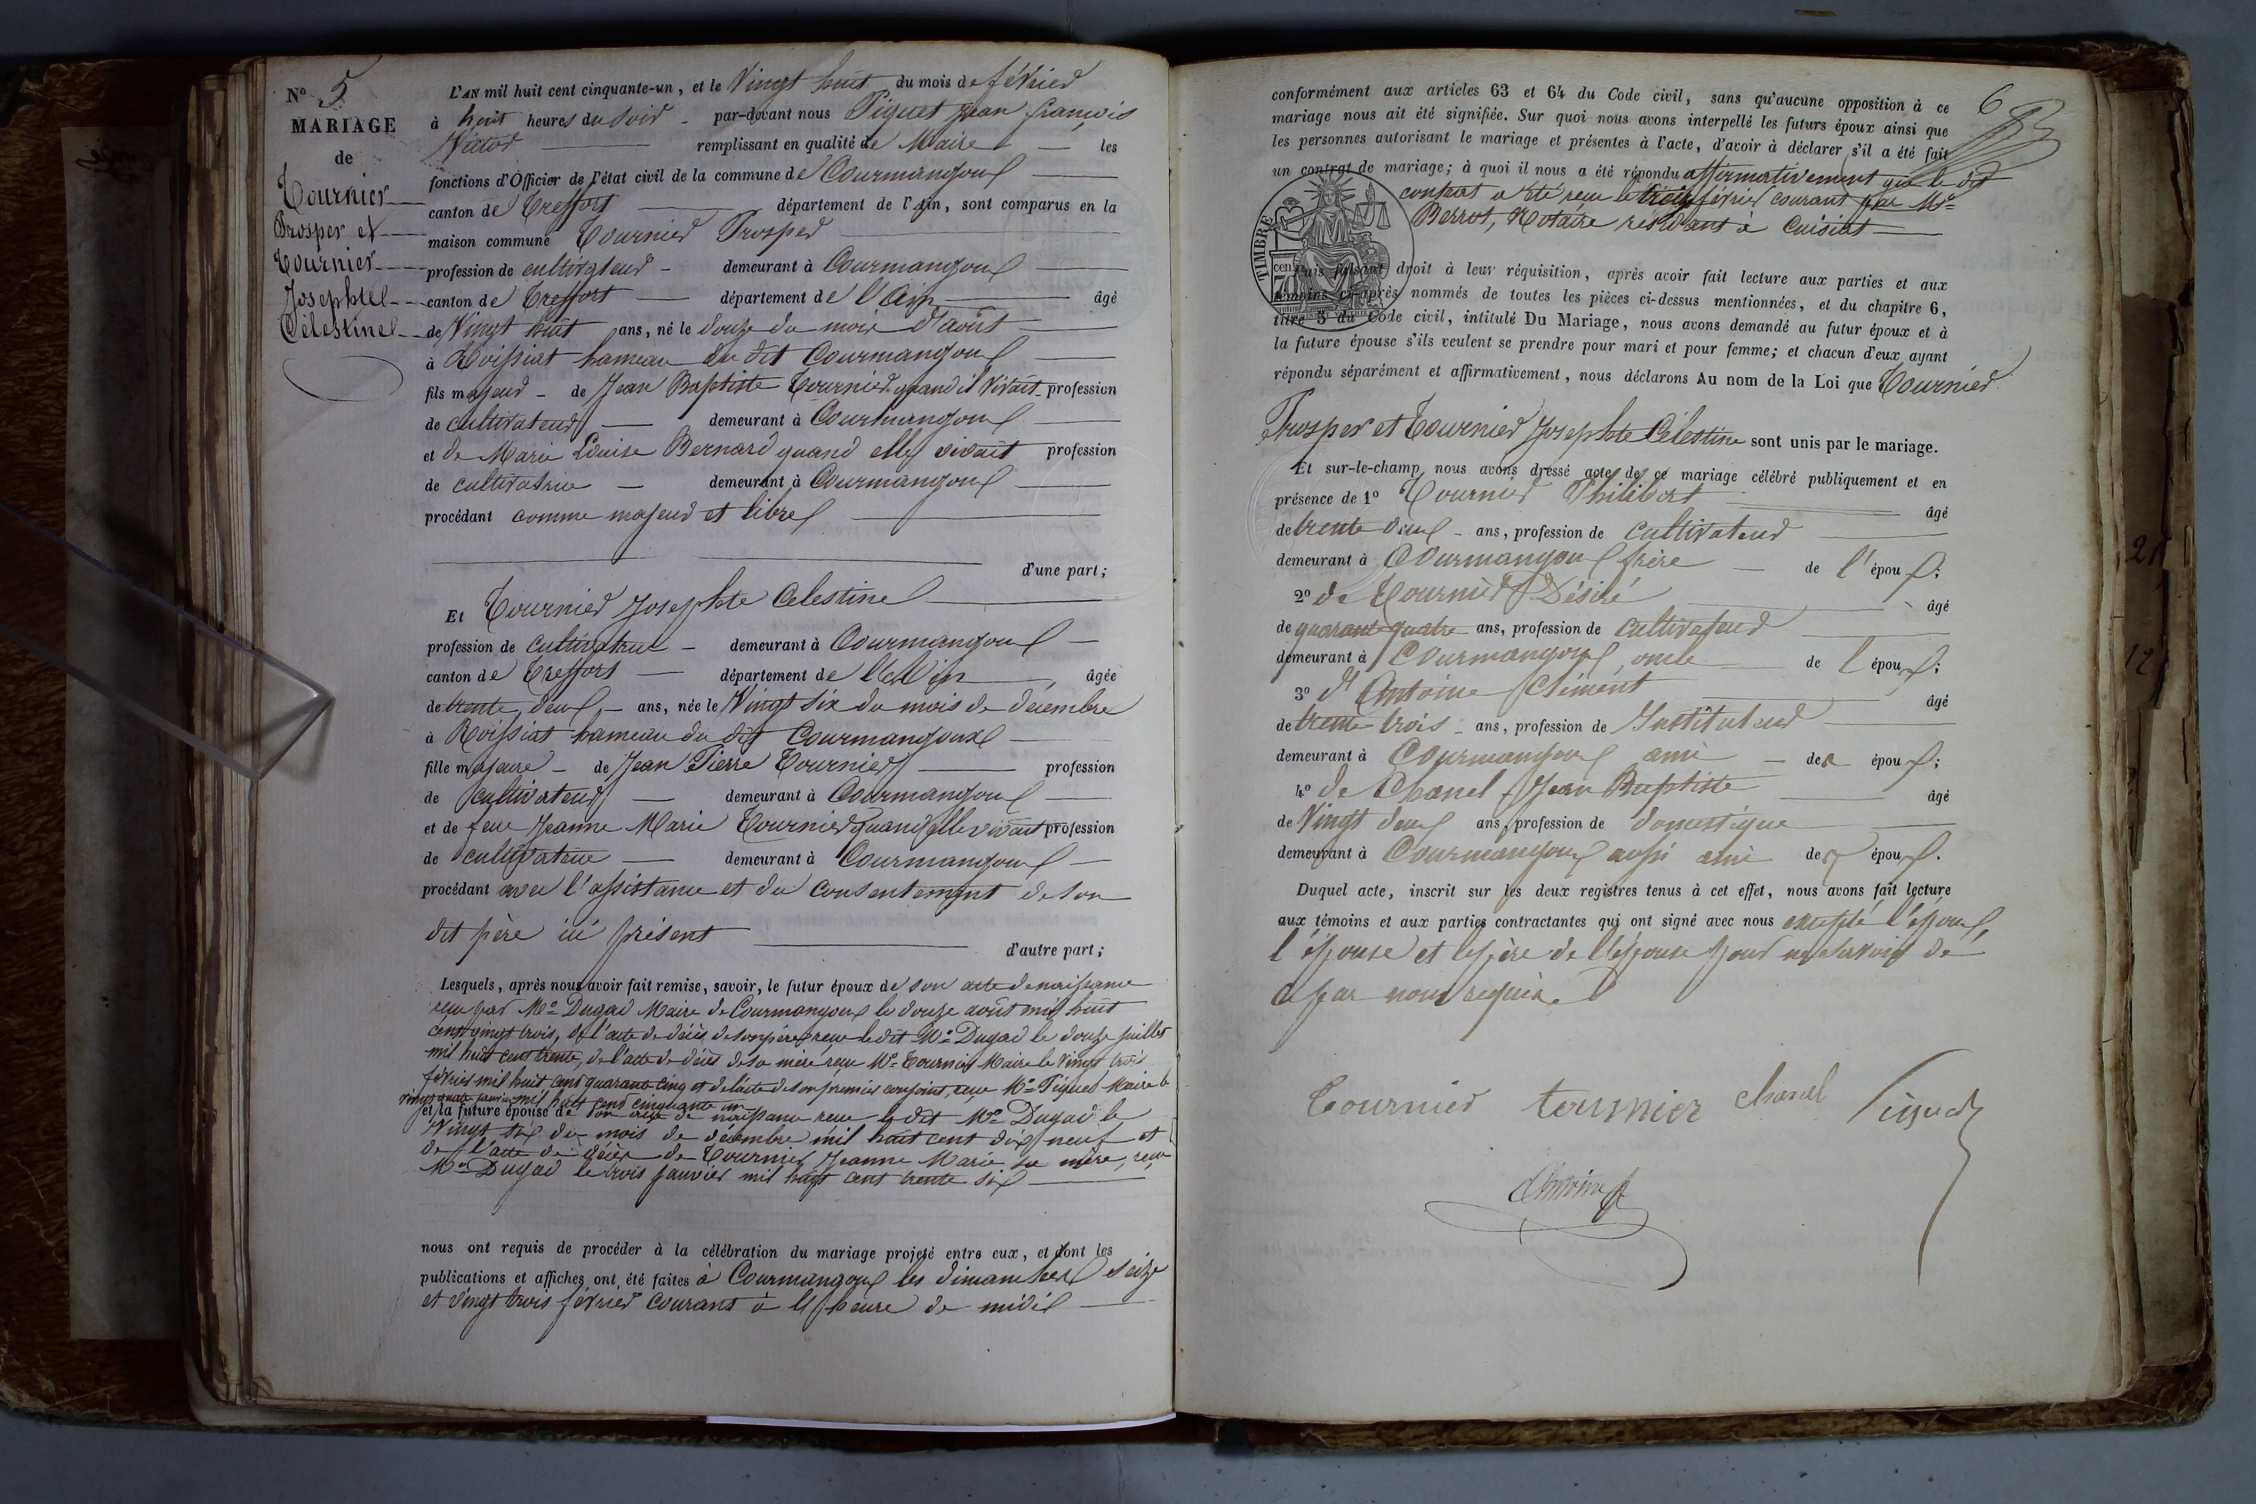 N° 5
MARIAGE
de
Tournier
Prosper et
Tournier
Josephte
Célestine
L'AN mil huit cent cinquante-un, et le Vingt huit du mois de février
à huit heures du soir par-devant nous Piquet Jean françois
Victor remplissant en qualité de Maire les
fonctions d'Officier de l'état civil de la commune de Courmangoux
canton de Treffort département de l'Ain, sont comparus en la
maison commune Tournier Prosper
profession de cultivateur demeurant à Courmangoux
canton de Treffort département de l'Ain âgé
de Vingt huit ans, né le douze du mois d'août
à Roissiat hameau du dit Courmangoux
fils majeur de Jean Baptiste Tournier quand il vivait profession
de cultivateur demeurant à Courmangoux
et de Marie Louise Bernard quand elle vivait profession
de cultivatrice demeurant à Courmangoux
procédant comme majeur et libre
d'une part;
Et Tournier Josephte Celestine
profession de cultivatrice demeurant à Courmangoux
canton de Treffort département de l'Ain âgée
de trente deux ans, née le Vingt six du mois de décembre
à Roissiat hameau du dit Courmangoux
fille majeure de Jean Pierre Tournier profession
de cultivateur demeurant à Courmangoux
et de feue Jeanne Marie Tournier quand elle vivait profession
de cultivatrice demeurant à Courmangoux
procédant avec l'assistance et du consentement de son
dit père ici présent
d'autre part;
Lesquels, après nous avoir fait remise, savoir, le futur époux de son acte de naissance
reçu par Mr Dugad Maire de Courmangoux le douze août mil huit
cent vingt trois, de l'acte de décès de son père reçu le dit Mr Dugad le douze juillet
mil huit cent trente, de l'acte de décès de sa mère reçu Mr Tournier Maire le Vingt trois
février mil huit cent quarante cinq et de l'acte de son premier conjoint, reçu Mr Piquet Maire le
vingt quatre janvier mil huit cent cinquante un
et la future épouse de son acte de naissance reçu le dit Mr Dugad le
Vingt six du mois de décembre mil huit cent dix neuf et
de l'acte de décès de Tournier Jeanne Marie sa mère, reçu
Mr Dugad le trois janvier mil huit cent trente six
nous ont requis de procéder à la célébration du mariage projeté entre eux, et dont les
publications et affiches ont été faites à Courmangoux les dimanches seize
et vingt trois février courant à l'heure de midi
6
conformément aux articles 63 et 64 du Code civil, sans qu'aucune opposition à ce
mariage nous ait été signifiée. Sur quoi nous avons interpellé les futurs époux ainsi que
les personnes autorisant le mariage et présentes à l'acte, d'avoir à déclarer s'il a été fait
un contrat de mariage; à quoi il nous a été répondu affirmativement que le dit
contrat a été reçu le treize février courant par Me
Berrot, Notaire résidant à Cuisiat
TIMBRE
Puis faisant droit à leur réquisition, après avoir fait lecture aux parties et aux
témoins ci-après nommés de toutes les pièces ci-dessus mentionnées, et du chapitre 6,
titre 5 du Code civil, intitulé Du Mariage, nous avons demandé au futur époux et à
la future épouse s'ils veulent se prendre pour mari et pour femme; et chacun d'eux ayant
répondu séparément et affirmativement, nous déclarons Au nom de la Loi que Tournier
Prosper et Tournier Josephte Célestine sont unis par le mariage.
Et sur-le-champ nous avons dressé acte de ce mariage célébré publiquement et en
présence de 1° Tournier Philibert âgé
de trente deux ans, profession de cultivateur
demeurant à Courmangoux frère de l'époux;
2° de Tournier Désiré âgé
de quarante quatre ans, profession de cultivateur
demeurant à Courmangoux, oncle de l'époux;
3° d'Antoine Clément âgé
de trente trois ans, profession de Instituteur
demeurant à Courmangoux ami des époux;
4° de Chanel Jean Baptiste âgé
de Vingt deux ans, profession de domestique
demeurant à Courmangoux aussi ami des époux.
Duquel acte, inscrit sur les deux registres tenus à cet effet, nous avons fait lecture
aux témoins et aux parties contractantes qui ont signé avec nous excepté l'époux,
l'épouse et le père de l'épouse pour ne savoir de
ce par nous requis.
Tournier tournier chanel Piquet
Antoine